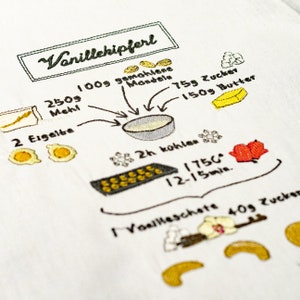 Vanillekipferl
100g gemahlene
Mandeln
75g Zucker
250g
Mehl
150g Butter
2 Eigelbe
2h kühlen
175C°
12-15min.
1 Vanilleschote
40g Zucker